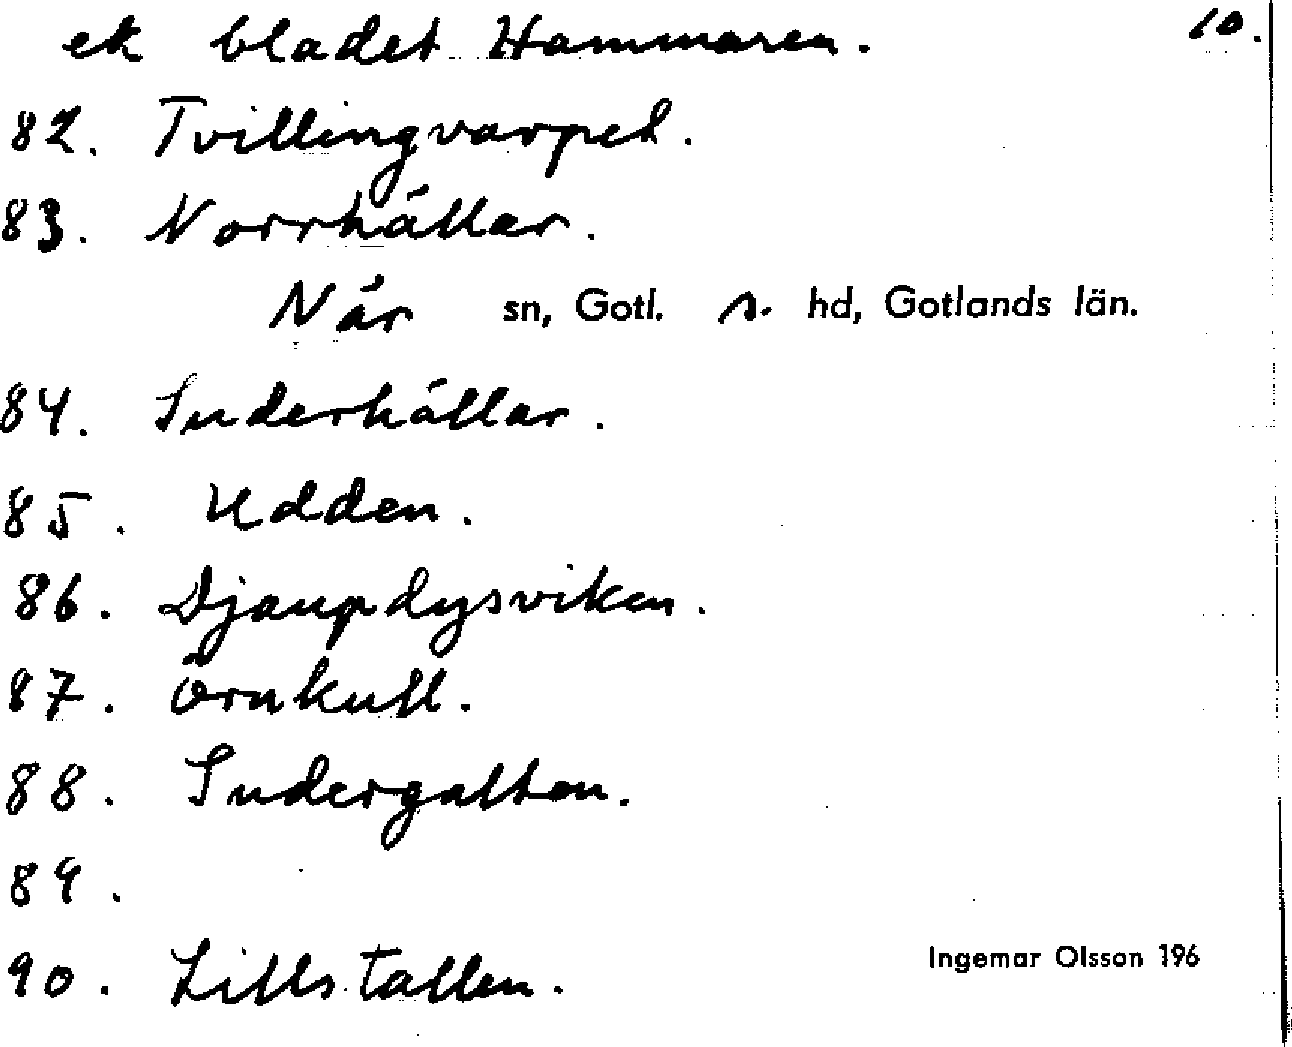 ek bladet Hammaren. 10.
82. Tvillingvarpet.
83. Norrhällar.
När sn, Gotl. s. hd, Gotlands län.
84. Suderhällar.
85. Udden.
86. Djaupdysviken.
87. Örnkull.
88. Sudergattan.
89.
90. Lillstallen.
Ingemar Olsson 196